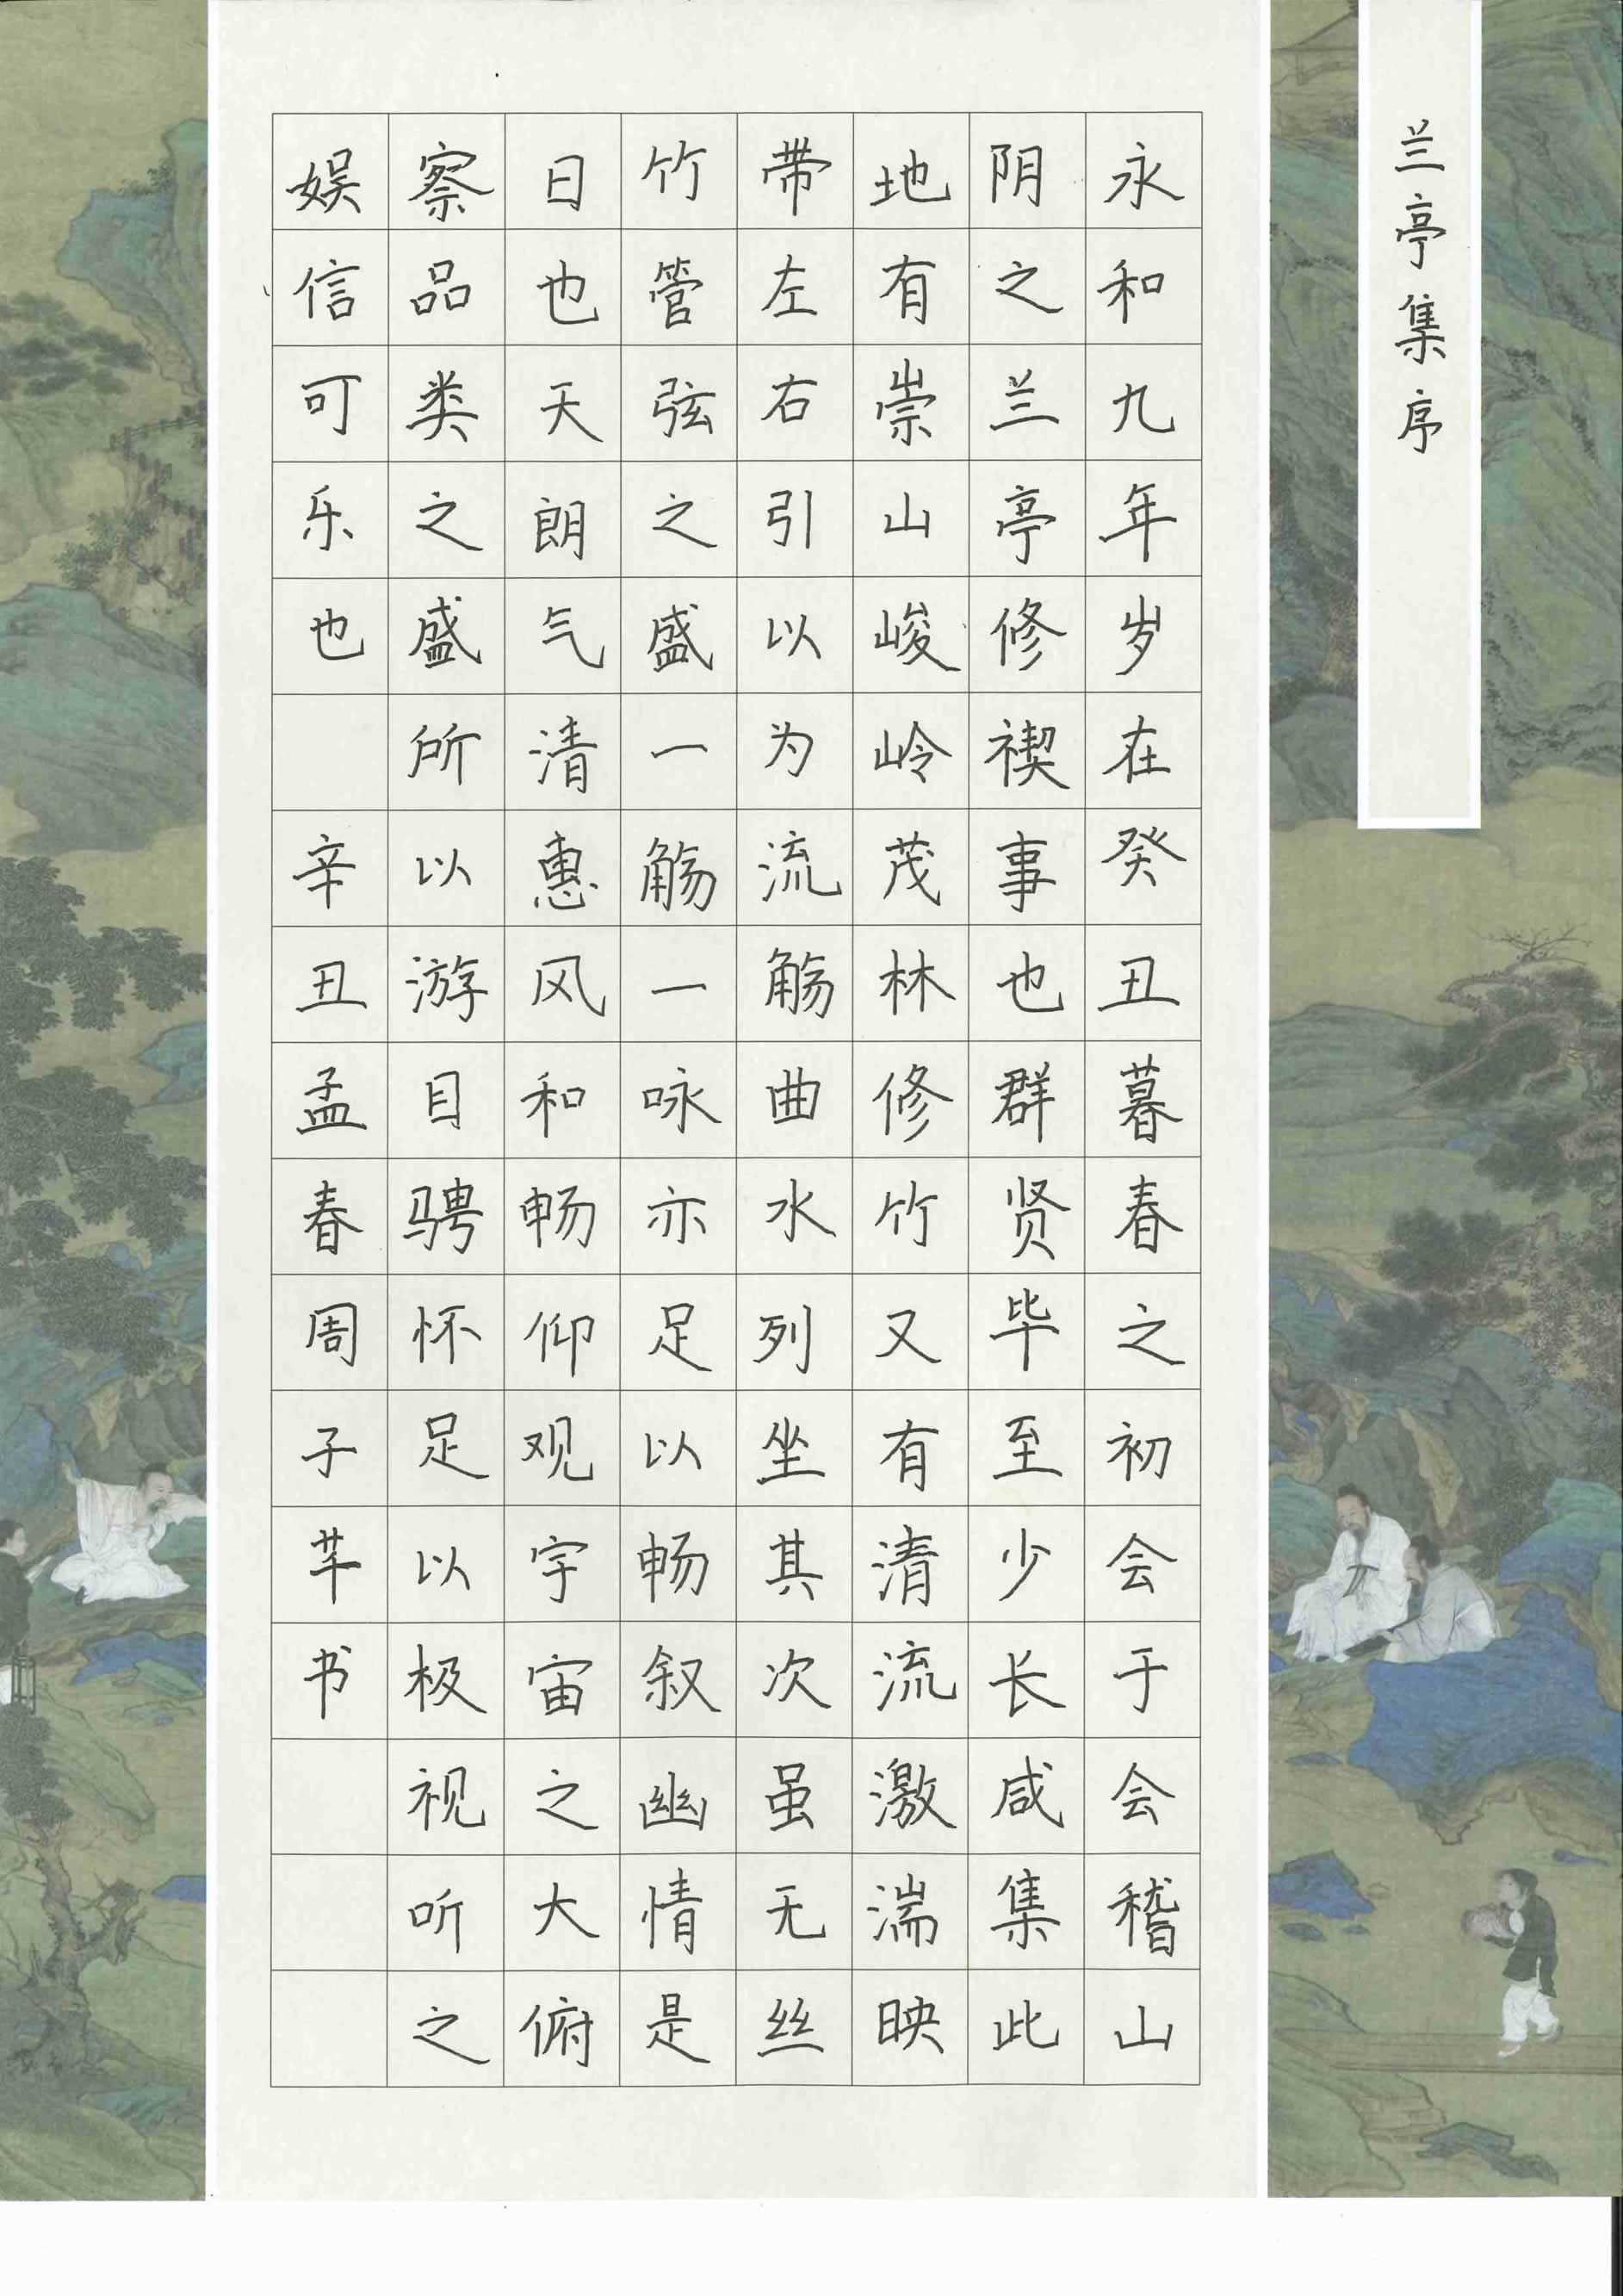 兰亭集序
永和九年岁在癸丑暮春之初会于会稽山
阴之兰亭修禊事也群贤毕至少长咸集此
地有崇山峻岭茂林修竹又有清流激湍映
带左右引以为流觞曲水列坐其次虽无丝
竹管弦之盛一觞一咏亦足以畅叙幽情是
日也天朗气清惠风和畅仰观宇宙之大俯
察品类之盛所以游目骋怀足以极视听之
娱信可乐也 辛丑孟春周子芊书